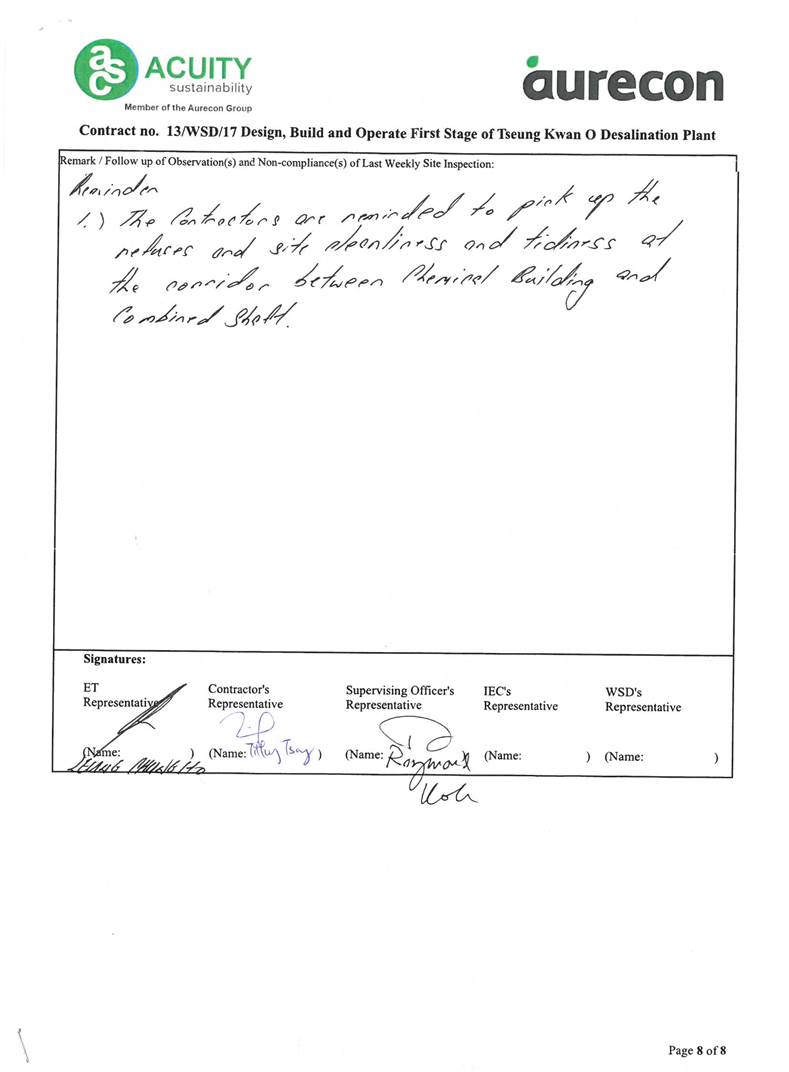 asc ACUITY
sustainability
Member of the Aurecon Group
aurecon
Contract no. 13/WSD/17 Design, Build and Operate First Stage of Tseung Kwan O Desalination Plant
Remark / Follow up of Observation(s) and Non-compliance(s) of Last Weekly Site Inspection:
Reminder
1.) The Contractors are reminded to pick up the
refuses and site cleanliness and tidiness at
the corridor between Chemical Building and
Combined Shaft.
Signatures:
ET
Representative
Contractor's
Representative
Supervising Officer's
Representative
IEC's
Representative
WSD's
Representative
(Name: )
(Name: Tiffany Tsang )
(Name: Raymond
Koh
(Name: )
(Name: )
Page 8 of 8